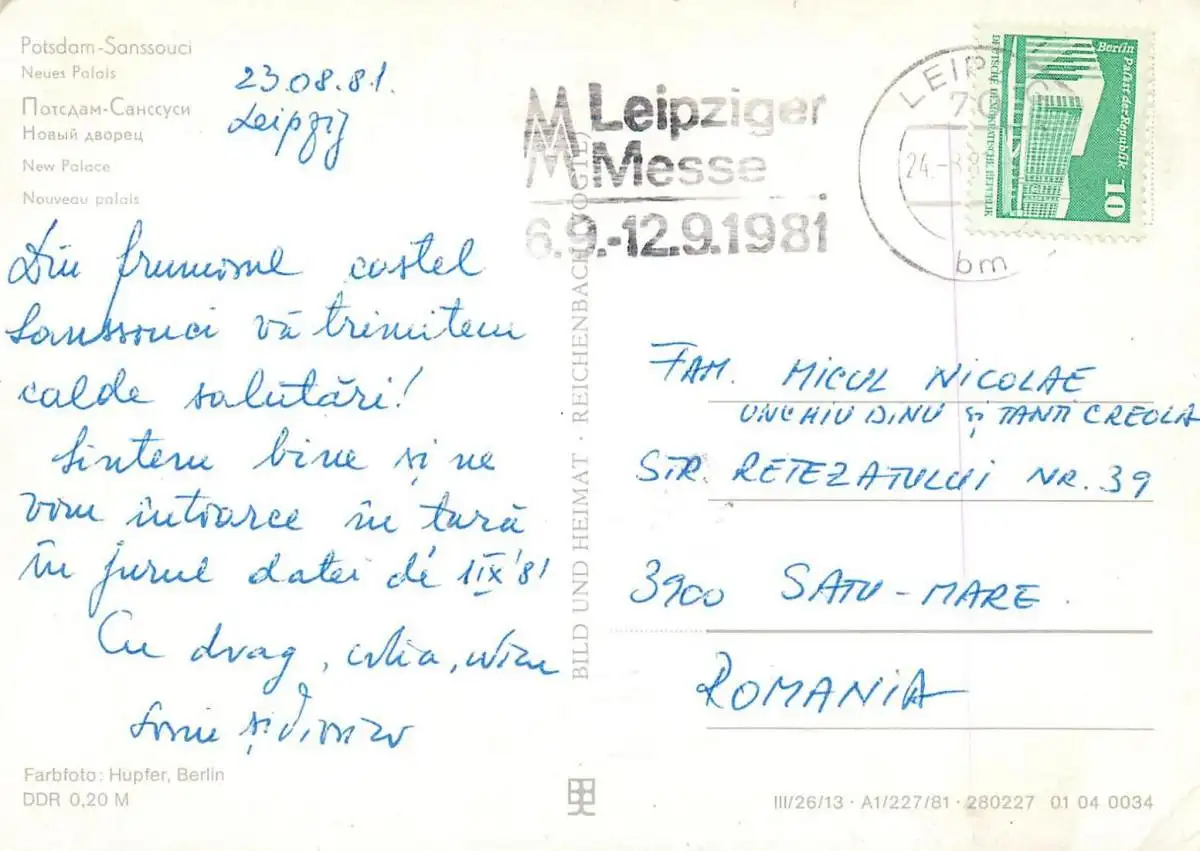 Potsdam-Sanssouci
Neues Palais
Потсдам-Сансcуси
Новый дворец
New Palace
Nouveau palais
23.08.81.
Leipzig
Din frumosul castel
Sanssouci vă trimitem
calde salutări!
Sintem bine și ne
vom intoarce în tară
în jurul datei de 1 IX '81
Cu drag,
și
Farbfoto: Hupfer, Berlin
DDR 0,20 M
BILD UND HEIMAT · REICHENBACH (VOGTL)
MM Leipziger
Messe
6.9.-12.9.1981
LEIPZIG
24.
bm
Berlin
Palast der Republik
DEUTSCHE DEMOKRATISCHE REPUBLIK
10
FAM. MICUL NICOLAE
UNCHIU DINU și TANTI CREOLA
STR. RETEZATULUI NR. 39
3900 SATU-MARE.
ROMANIA
III/26/13 · A1/227/81 · 280227 01 04 0034